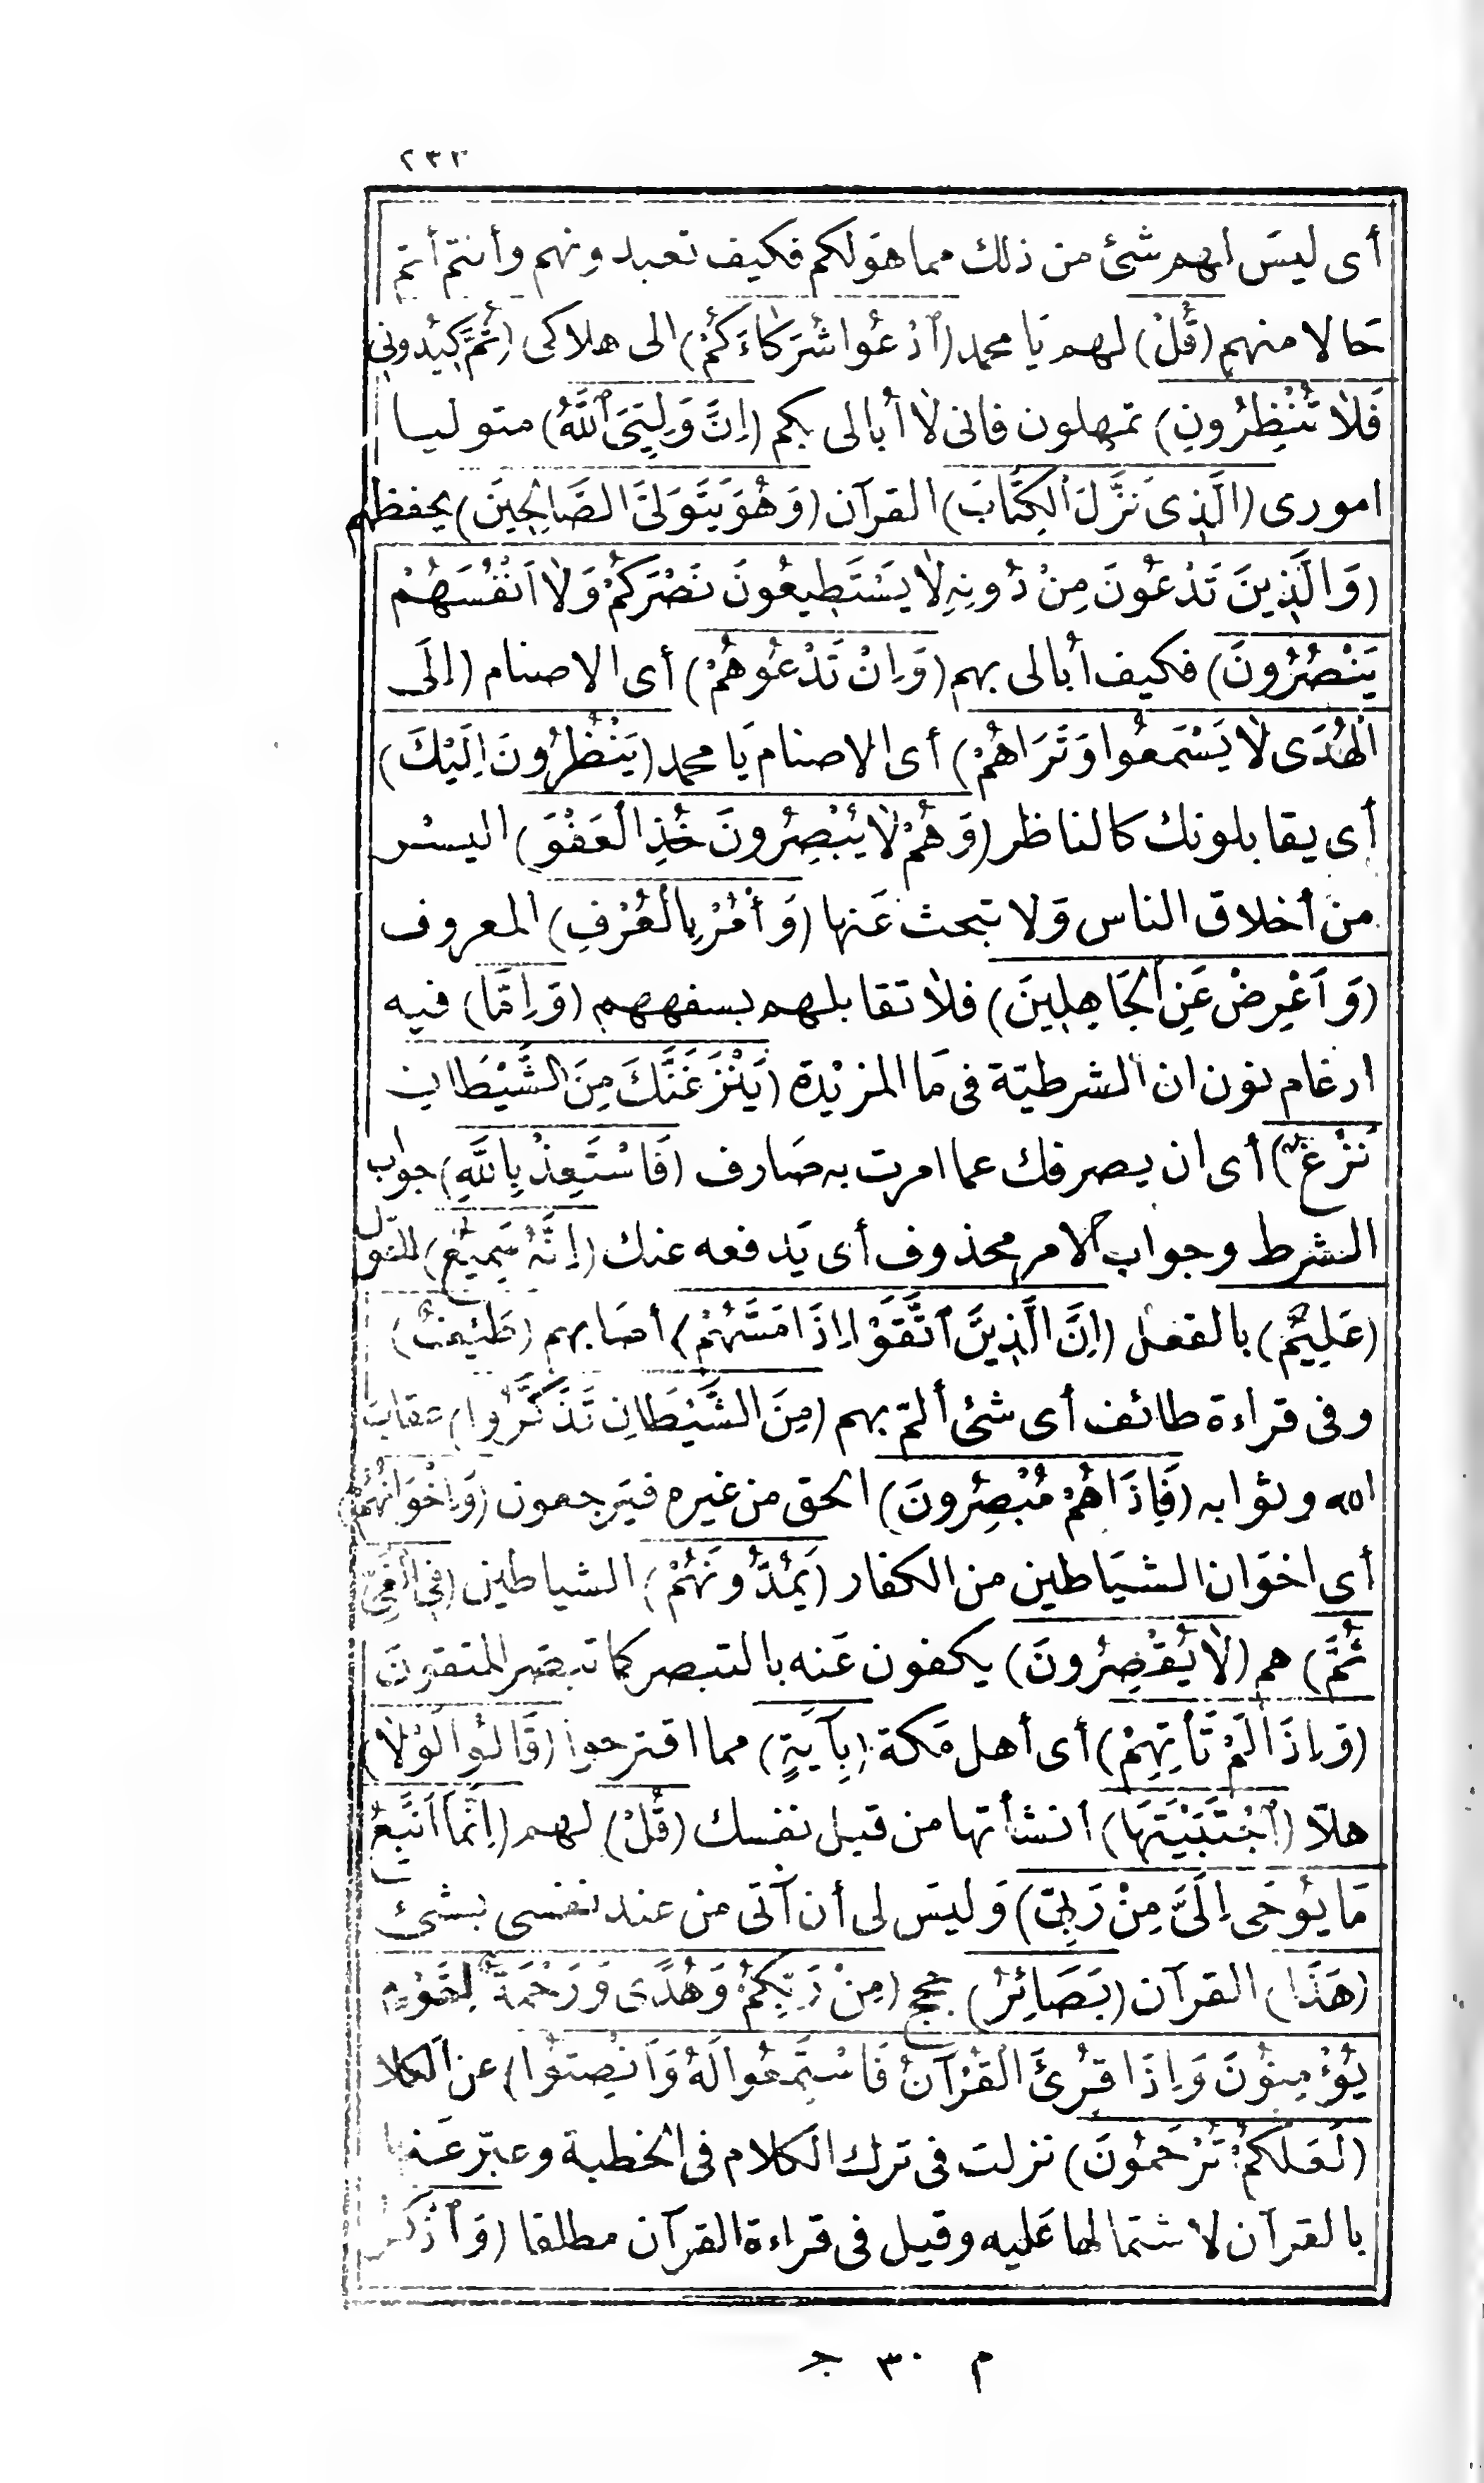 ٢٣٣
أى ليسَ لهم شئ من ذلك مما هوَ لكم فكيف تعبدونهم وأنتم أتم
حَالا منهم (قُلْ) لهم يَا محمد (ٱدْعُوا شُرَكَاءَكُمْ) الى هلاكى (ثُمَّ كِيدُونِ
فَلَا تُنْظِرُونِ) تمهلون فانى لَا أُبالى بكم (اِنَّ وَلِيِّىَ ٱللَّهُ) متوليا
امورى (الَّذِى نَزَّلَ الْكِتَابَ) القرآن (وَهُوَ يَتَوَلَّى الصَّالِحِينَ) يحفظهم
(وَالَّذِينَ تَدْعُونَ مِنْ دُونِهِ لَا يَسْتَطِيعُونَ نَصْرَكُمْ وَلَا اَنْفُسَهُمْ
يَنْصُرُونَ) فكيف اُبالى بهم (وَاِنْ تَدْعُوهُمْ) أى الاصنام (اِلَى
الْهُدَى لَا يَسْمَعُوا وَتَرَاهُمْ) أى الاصنام يَا محمد (يَنْظُرُونَ اِلَيْكَ)
أى يقابلونك كالناظر (وَهُمْ لَا يُبْصِرُونَ خُذِ الْعَفْوَ) اليسْر
من أخلاق الناس وَلا تبحث عَنها (وَأْمُرْ بِالْعُرْفِ) المعروف
(وَاَعْرِضْ عَنِ الْجَاهِلِينَ) فلا تقابلهم بسفههم (وَاِمَّا) فيه
ادغام نون ان الشرطيّة فى مَا المزيْدة (يَنْزَغَنَّكَ مِنَ الشَّيْطَانِ
نَزْغٌ) أى ان يصرفك عما امرت به صَارف (فَاسْتَعِذْ بِاللَّهِ) جواب
الشرط وجواب الامر محذوف أى يَدفعه عنك (اِنَّهُ سَمِيعٌ) للقول
(عَلِيمٌ) بالفعل (اِنَّ الَّذِينَ ٱتَّقَوْا اِذَا مَسَّهُمْ) أصَابهم (طَيْفٌ)
وفى قراءة طائف أى شئ ألمّ بهم (مِنَ الشَّيْطَانِ تَذَكَّرُوا) عقاب
الله وثوابه (فَاِذَا هُمْ مُبْصِرُونَ) الحق من غيره فيَرجعون (وَاِخْوَانُهُمْ)
أى اخوَان الشيَاطين من الكفار (يَمُدُّونَهُمْ) الشياطين (فِى الْغَىِّ
ثُمَّ) هم (لَا يُقْصِرُونَ) يكفون عَنه بالتبصر كما تبصّر المتقونَ
(وَاِذَا لَمْ تَأْتِهِمْ) أى أهل مَكة (بِآيَةٍ) مما اقترحوا (قَالُوا لَوْلَا)
هلّا (ٱجْتَبَيْتَهَا) أنشأتها من قبل نفسك (قُلْ) لهم (اِنَّمَا اَتَّبِعُ
مَا يُوحَى اِلَىَّ مِنْ رَبِّى) وَليسَ لى أن آتى من عند نفسى بشئ
(هَذَا) القرآن (بَصَائِرُ) حجج (مِنْ رَبِّكُمْ وَهُدًى وَرَحْمَةٌ لِقَوْمٍ
يُؤْمِنُونَ وَاِذَا قُرِئَ الْقُرْآنُ فَاسْتَمِعُوا لَهُ وَاَنْصِتُوا) عن الكلا
(لَعَلَّكُمْ تُرْحَمُونَ) نزلت فى ترك الكلام فى الخطبة وعبّر عَنها
بالقرآن لاشتمالها عَليه وقيل فى قراءة القرآن مطلقا (وَٱذْكُرْ
م ٣٠ جـ